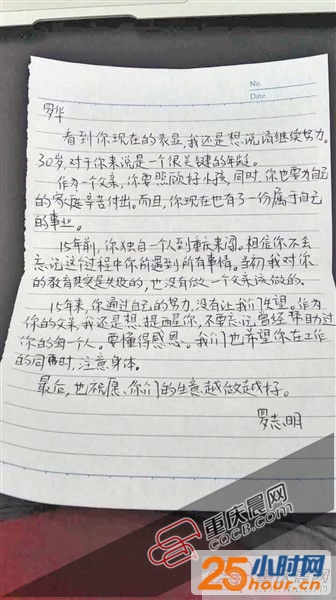 No.
Date
罗华
看到你现在的表显,我还是想说请继续努力。
30岁,对于你来说是一个很关键的年龄。
作为一个父亲,你要照顾好小孩,同时,你也要为自己
的家庭辛苦付出。而且,你现在也有了一份属于自己
的事业。
15年前,你独自一个人到重庆来闯。相信你不会
忘记这个过程中你所遇到所有事情。当初,我对你
的教育其实是失败的,也没有做一个父亲该做的。
15年来,你通过自己的努力,没有让我们失望。作为
你的父亲,我还是想提醒你,不要忘记曾经帮助过
你的每一个人。要懂得感恩。我们也希望你在工作
的同时,注意身体。
最后,也祝愿你们的生意越做越好。
罗志明
重庆晨网
CQCB.COM
25小时网
25hour.cn